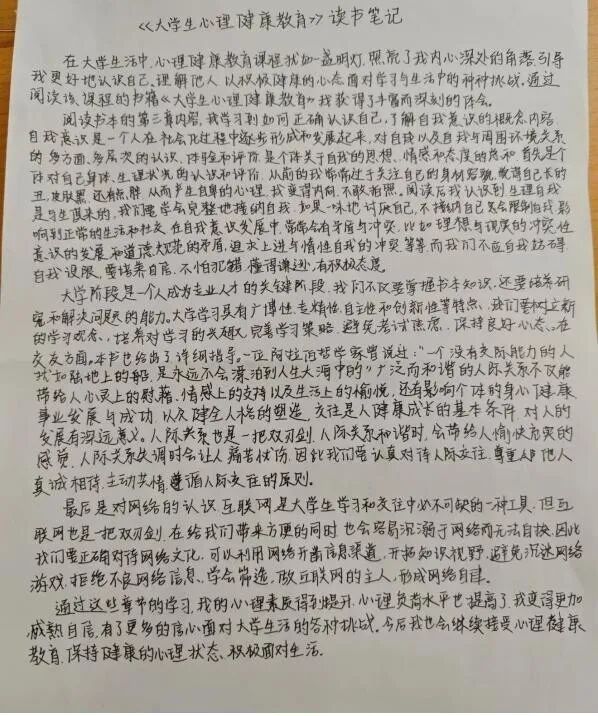 《大学生心理健康教育》读书笔记
在大学生活中,心理健康教育课程犹如一盏明灯,照亮了我内心深处的角落,引导
我更好地认识自己,理解他人,以积极健康的心态面对学习与生活中的种种挑战。通过
阅读该课程的书籍《大学生心理健康教育》我获得了丰富而深刻的体会。
阅读书本的第三章内容,我学习到如何正确认识自己,了解自我意识的概念内容
自我意识是一个人在社会化过程中逐步形成和发展起来,对自我以及自我与周围环境关系
的多方面、多层次的认识、体验和评价,是个体关于自我的思想、情感和态度的总和,首先是个
体对自己身体、生理状况的认识和评价,从前的我常常过于关注自己的身材容貌,觉得自己长的
丑,皮肤黑,还有点胖,从而产生自卑的心理,我变得内向,不敢拍照。阅读后我认识到生理自我
是与生俱来的,我们要学会完整地接纳自我,如果一味地讨厌自己,不接纳自己,会限制自我,影
响到正常的生活和社交,在自我意识发展中,常常会有矛盾与冲突,比如理想与现实的冲突,性
意识的发展和道德规范的矛盾,追求上进与惰性自我的冲突等等,而我们不应自我妨碍
自我设限,要培养自信,不怕犯错,懂得谦逊,有积极态度。
大学阶段是一个人成为专业人才的关键阶段,我们不仅要掌握书本知识,还要培养研
究和解决问题的能力,大学学习具有广博性、专精性、自主性和创新性等特点,我们要树立新
的学习观念,培养对学习的兴趣,完善学习策略,避免考试焦虑,保持良好心态。在
交友方面,本书也给出了详细指导。一位阿拉伯哲学家曾说过:"一个没有交际能力的人
犹如陆地上的船,是永远不会漂泊到人生大海中的"广泛而和谐的人际关系不仅能
带给人心灵上的慰藉、情感上的支持以及生活上的愉悦,还有影响个体的身心健康
事业发展与成功,以及健全人格的塑造,交往是人健康成长的基本条件,对人的
发展有深远意义。人际关系也是一把双刃剑,人际关系和谐时,会带给人愉快充实的
感觉,人际关系失调时会让人痛苦忧伤,因此我们要认真对待人际交往,尊重他人
真诚相待,主动共情,遵循人际交往的原则。
最后是对网络的认识,互联网是大学生学习和交往中必不可缺的一种工具,但互
联网也是一把双刃剑,在给我们带来方便的同时,也会容易沉溺于网络而无法自拔,因此
我们要正确对待网络文化,可以利用网络开阔信息渠道,开拓知识视野,避免沉迷网络
游戏,拒绝不良网络信息,学会筛选,做互联网的主人,形成网络自律。
通过这些章节的学习,我的心理素质得到提升,心理负荷水平也提高了,我变得更加
成熟自信,有了更多的信心面对大学生活的各种挑战。今后我也会继续接受心理健康
教育,保持健康的心理状态,积极面对生活。